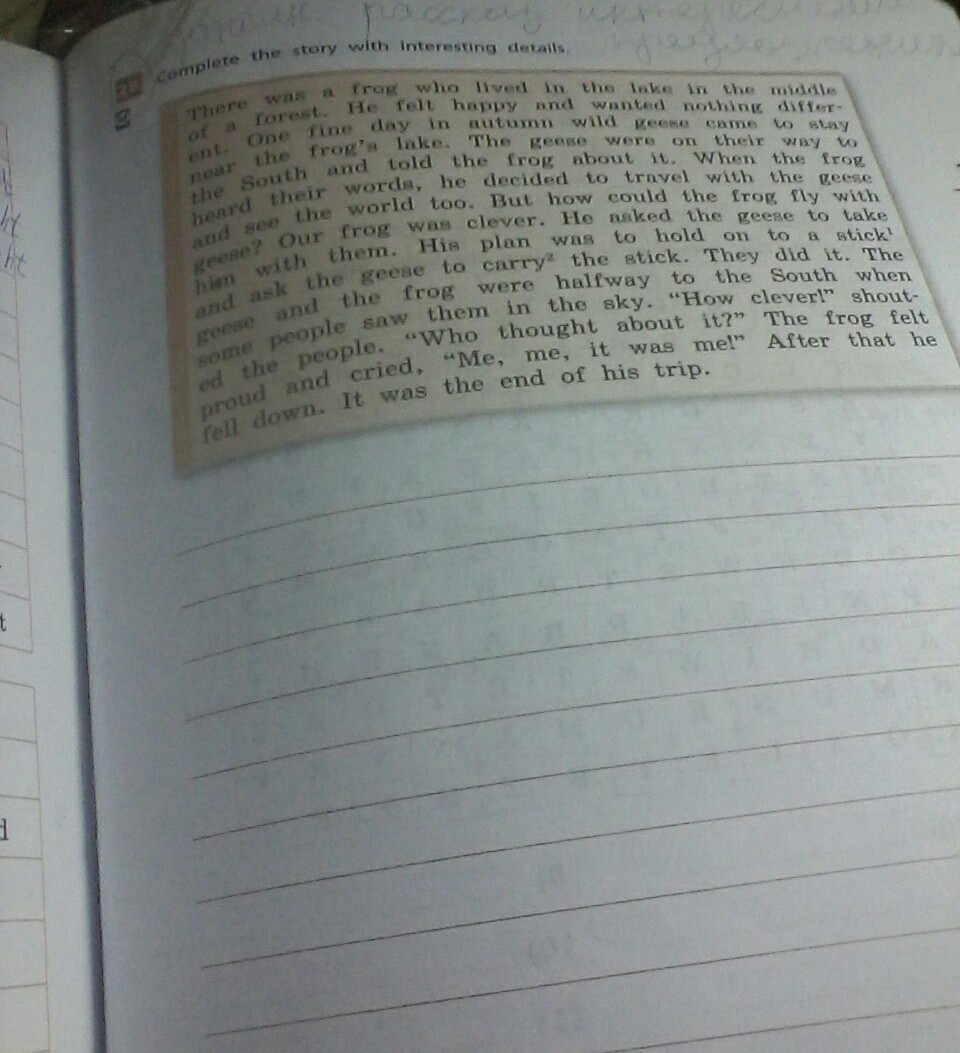 рассказ
Complete the story with interesting details.
There was a frog who lived in the lake in the middle
of a forest. He felt happy and wanted nothing differ-
ent. One fine day in autumn wild geese came to stay
near the frog's lake. The geese were on their way to
the South and told the frog about it. When the frog
heard their words, he decided to travel with the geese
and see the world too. But how could the frog fly with
geese? Our frog was clever. He asked the geese to take
him with them. His plan was to hold on to a stick¹
and ask the geese to carry² the stick. They did it. The
geese and the frog were halfway to the South when
some people saw them in the sky. “How clever!” shout-
ed the people. “Who thought about it?” The frog felt
proud and cried, “Me, me, it was me!” After that he
fell down. It was the end of his trip.
t
d